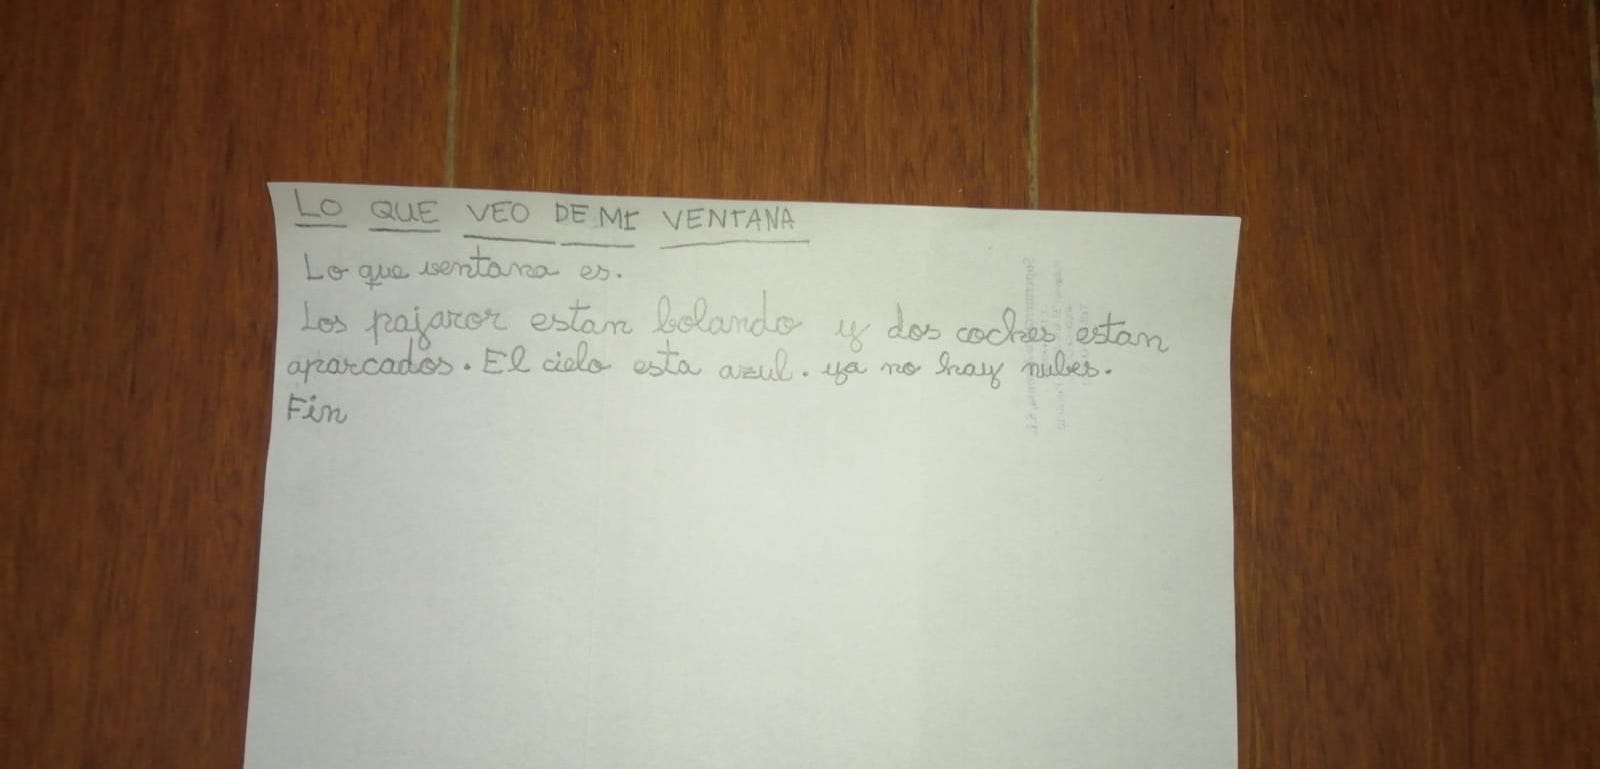 LO QUE VEO DE MI VENTANA
Lo que ventana es.
Los pajaror estan bolando y dos coches estan
aparcados. El cielo esta azul. ya no hay nubes.
Fin